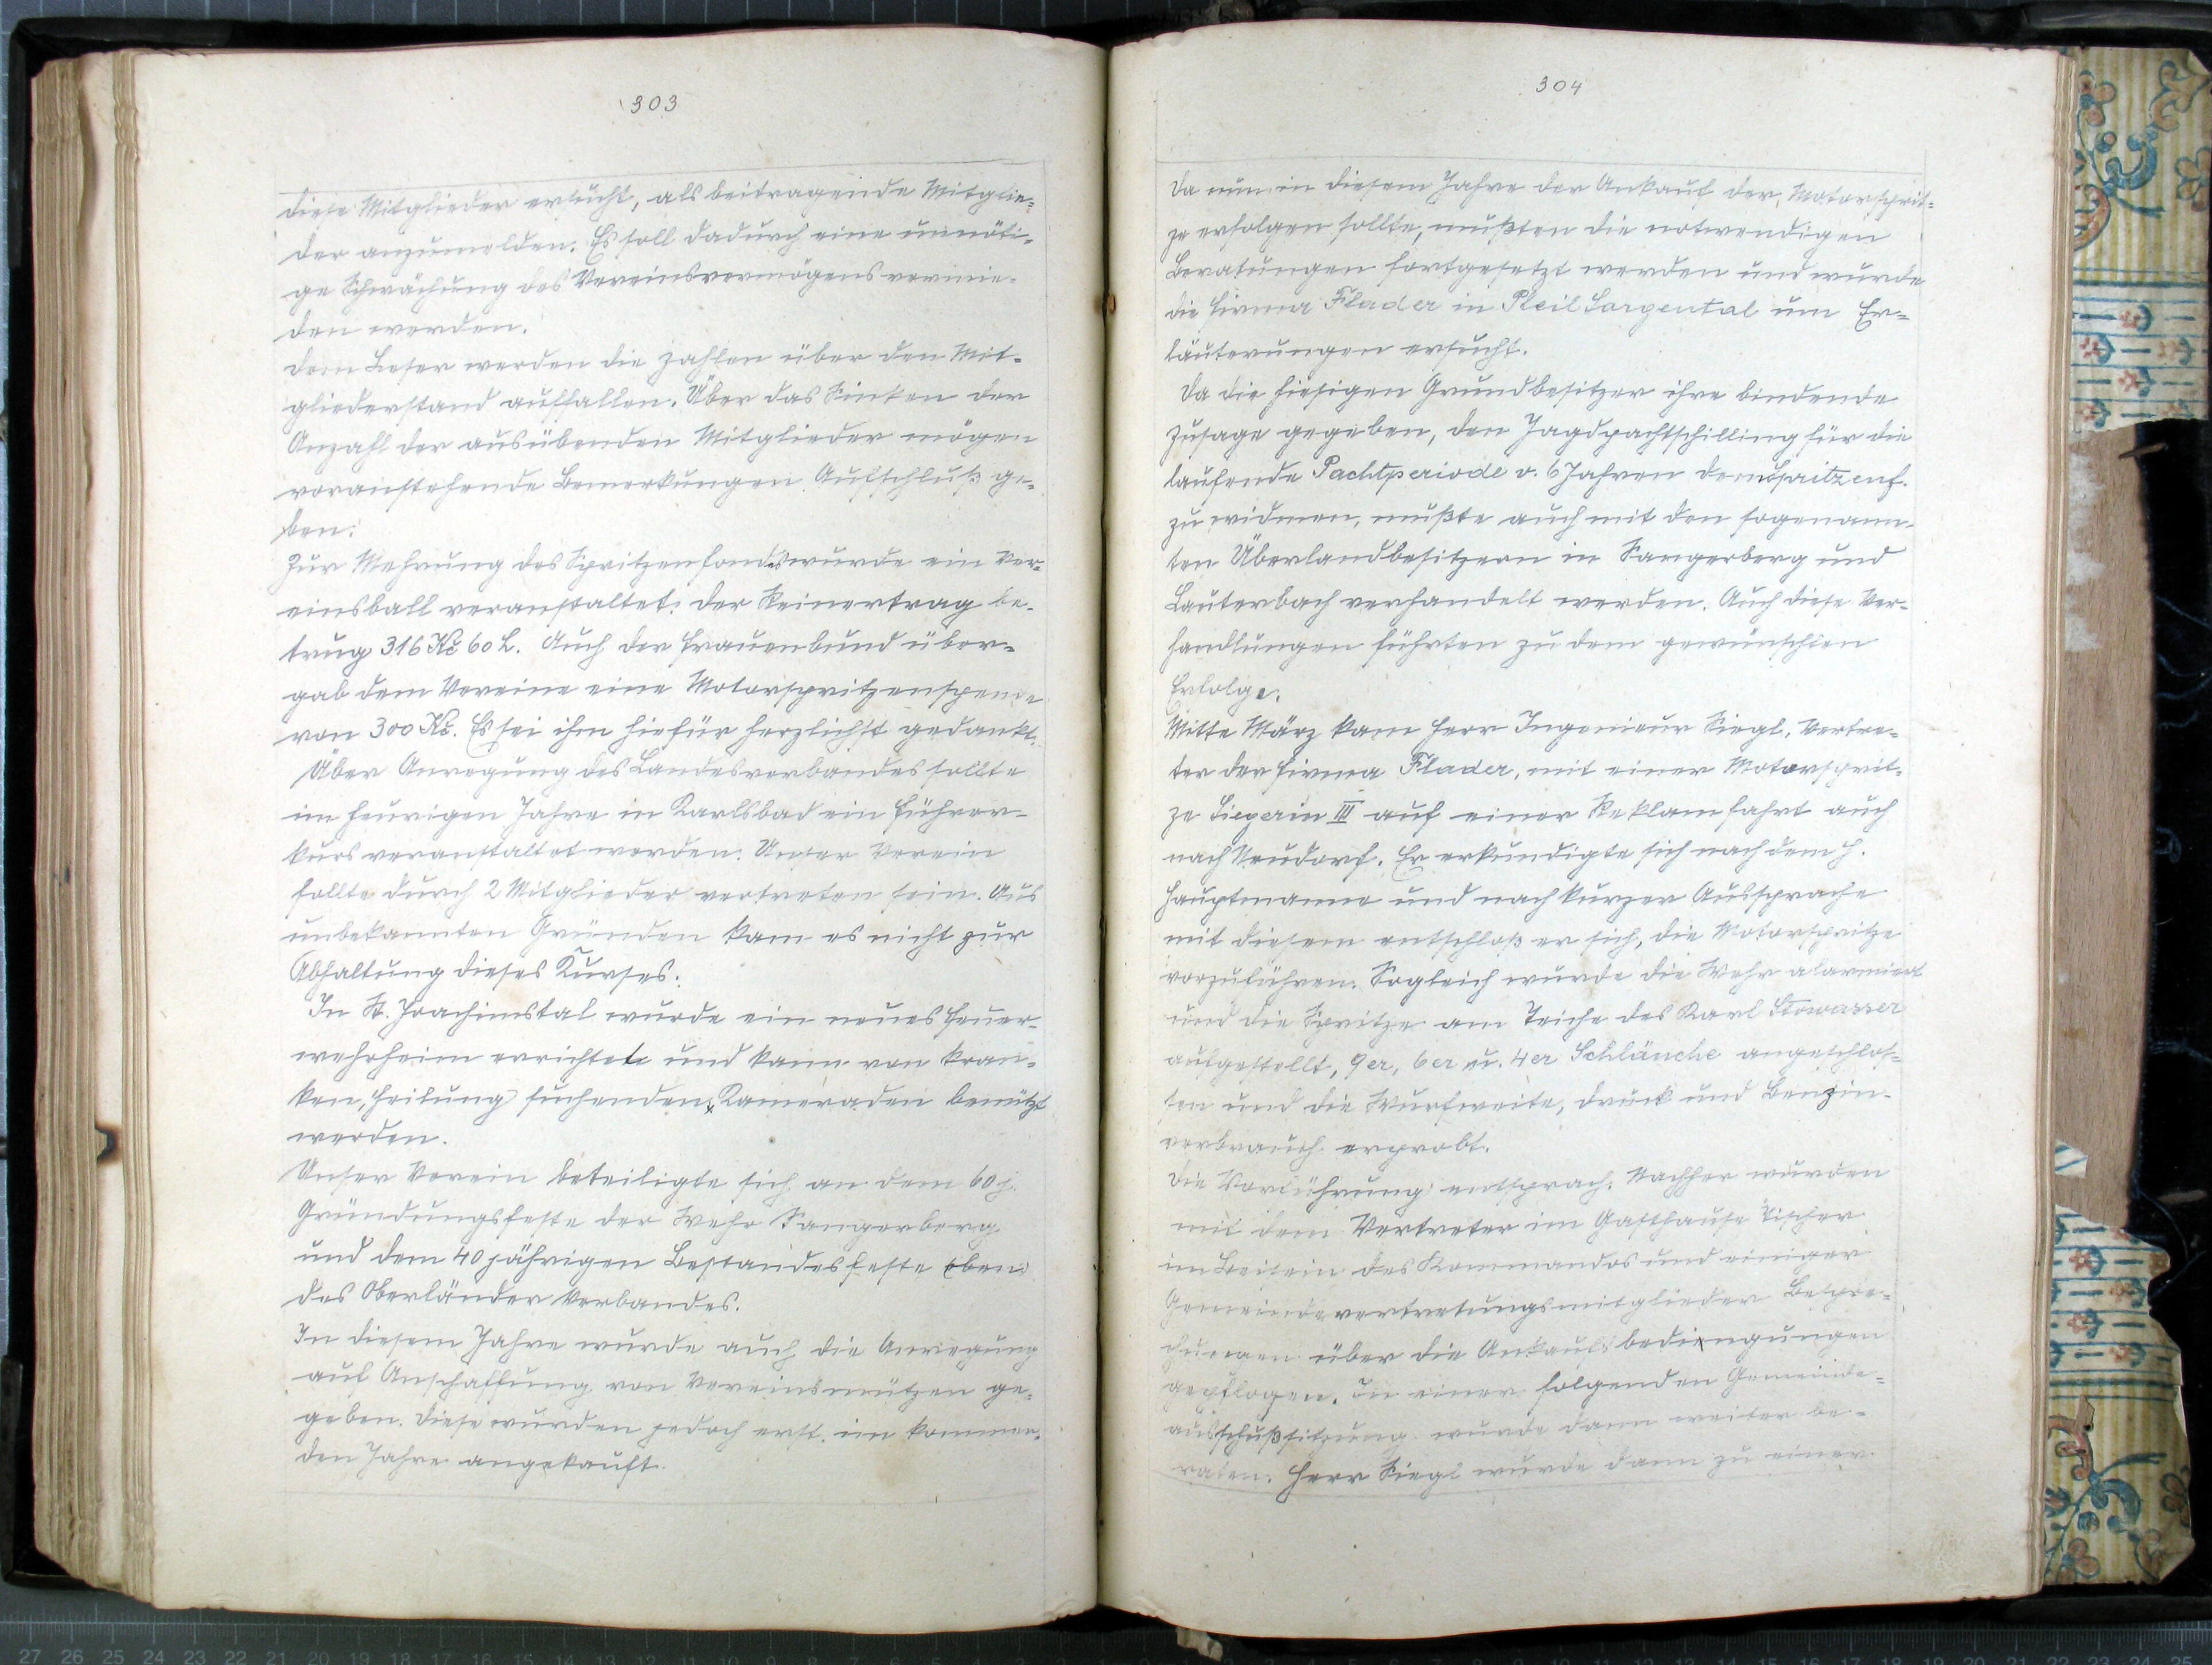 303
diese Mitglieder ersucht, als beitragende Mitglie=
der anzumelden. Es soll dadurch eine unnöti=
ge Schwächung des Vereinsvermögens vermie=
den werden.
Dem Leser werden die Zahlen über den Mit=
gliederstand auffallen. Über das Sinken der
Anzahl der ausübenden Mitglieder mögen
voranstehende Bemerkungen Aufschluß ge=
ben.
Zur Mehrung des Spritzenfondes wurde ein Ver=
einsball veranstaltet; der Reinertrag be=
trug 316 Kč 60 h. Auch der Frauenbund über=
gab dem Vereine eine Motorspritzenspende
von 300 Kč. Es sei ihm hiefür herzlichst gedankt.
Über Anregung des Landesverbandes sollte
im heurigen Jahre in Karlsbad ein Führer=
kurs veranstaltet werden. Unser Verein
sollte durch 2 Mitglieder vertreten sein. Aus
unbekannten Gründen kam es nicht zur
Abhaltung dieses Kurses.
In St. Joachimstal wurde ein neues Feuer=
wehrheim errichtet und kann von kran=
ken, Heilung suchenden Kameraden benützt
werden.
Unser Verein beteiligte sich an dem 60 j.
Gründungsfeste der Wehr Sangerberg
und dem 40 jährigen Bestandesfeste eben
des Oberländer Verbandes.
In diesem Jahre wurde auch die Anregung
auf Anschaffung von Vereinsmützen ge=
geben. Diese wurden jedoch erst im kommen=
den Jahre angekauft.
304
Da nun in diesem Jahre der Ankauf der Motorsprit=
ze erfolgen sollte, mußten die notwendigen
Beratungen fortgesetzt werden und wurde
die Firma Flader in Pleil Sorgental um Er=
läuterungen ersucht.
Da die hiesigen Grundbesitzer ihre bindende
Zusage gegeben, den Jagdpachtschilling für die
laufende Pachtperiode v. 6 Jahren dem Spritzenf.
zu widmen, mußte auch mit den sogenann=
ten Überlandbesitzern in Sangerberg und
Lauterbach verhandelt werden. Auch diese Ver=
handlungen führten zu dem gewünschten
Erfolge.
Mitte März kam Herr Ingenieur Siegl, Vertre=
ter der Firma Flader, mit einer Motorsprit=
ze Siegerin III auf einer Reklamfahrt auch
nach Neudorf. Er erkundigte sich nach dem H.
Hauptmanne und nach kurzer Aussprache
mit diesem entschloß er sich, die Motorspritze
vorzuführen. Sogleich wurde die Wehr alarmiert
und die Spritze am Teiche des Karl Stowasser
aufgestellt, 9er, 6er u. 4er Schläuche angeschlos=
sen und die Wurfweite, Druck und Benzin=
verbrauch erprobt.
Die Vorführung entsprach. Nachher wurden
mit dem Vertreter im Gasthause Tischer
im Beisein des Kommandos und einiger
Gemeindevertretungsmitglieder Bespre=
chungen über die Ankaufsbedingungen
gepflogen. In einer folgenden Gemeinde=
ausschußsitzung wurde dann weiter be=
raten. Herr Siegl wurde dann zu einer
27 26 25 24 23 22 21 20 19 18 17 16 15 14 13 12 11 10